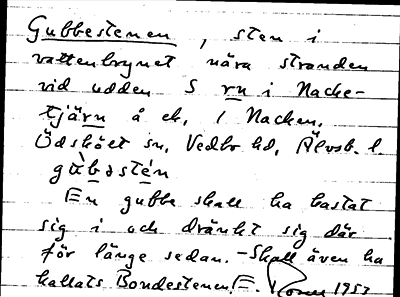 Gubbestenen, sten i
vattenbrynet nära stranden
vid udden S rn i Nacke-
tjärn å ek, / Nacken,
Ödsköet sn, Vedbo hd, Älvsb. l.
gùbəstén
En gubbe skall ha kastat
sig i och dränkt sig där
för länge sedan. – Skall även ha
kallats Bondestenen. E. 1953